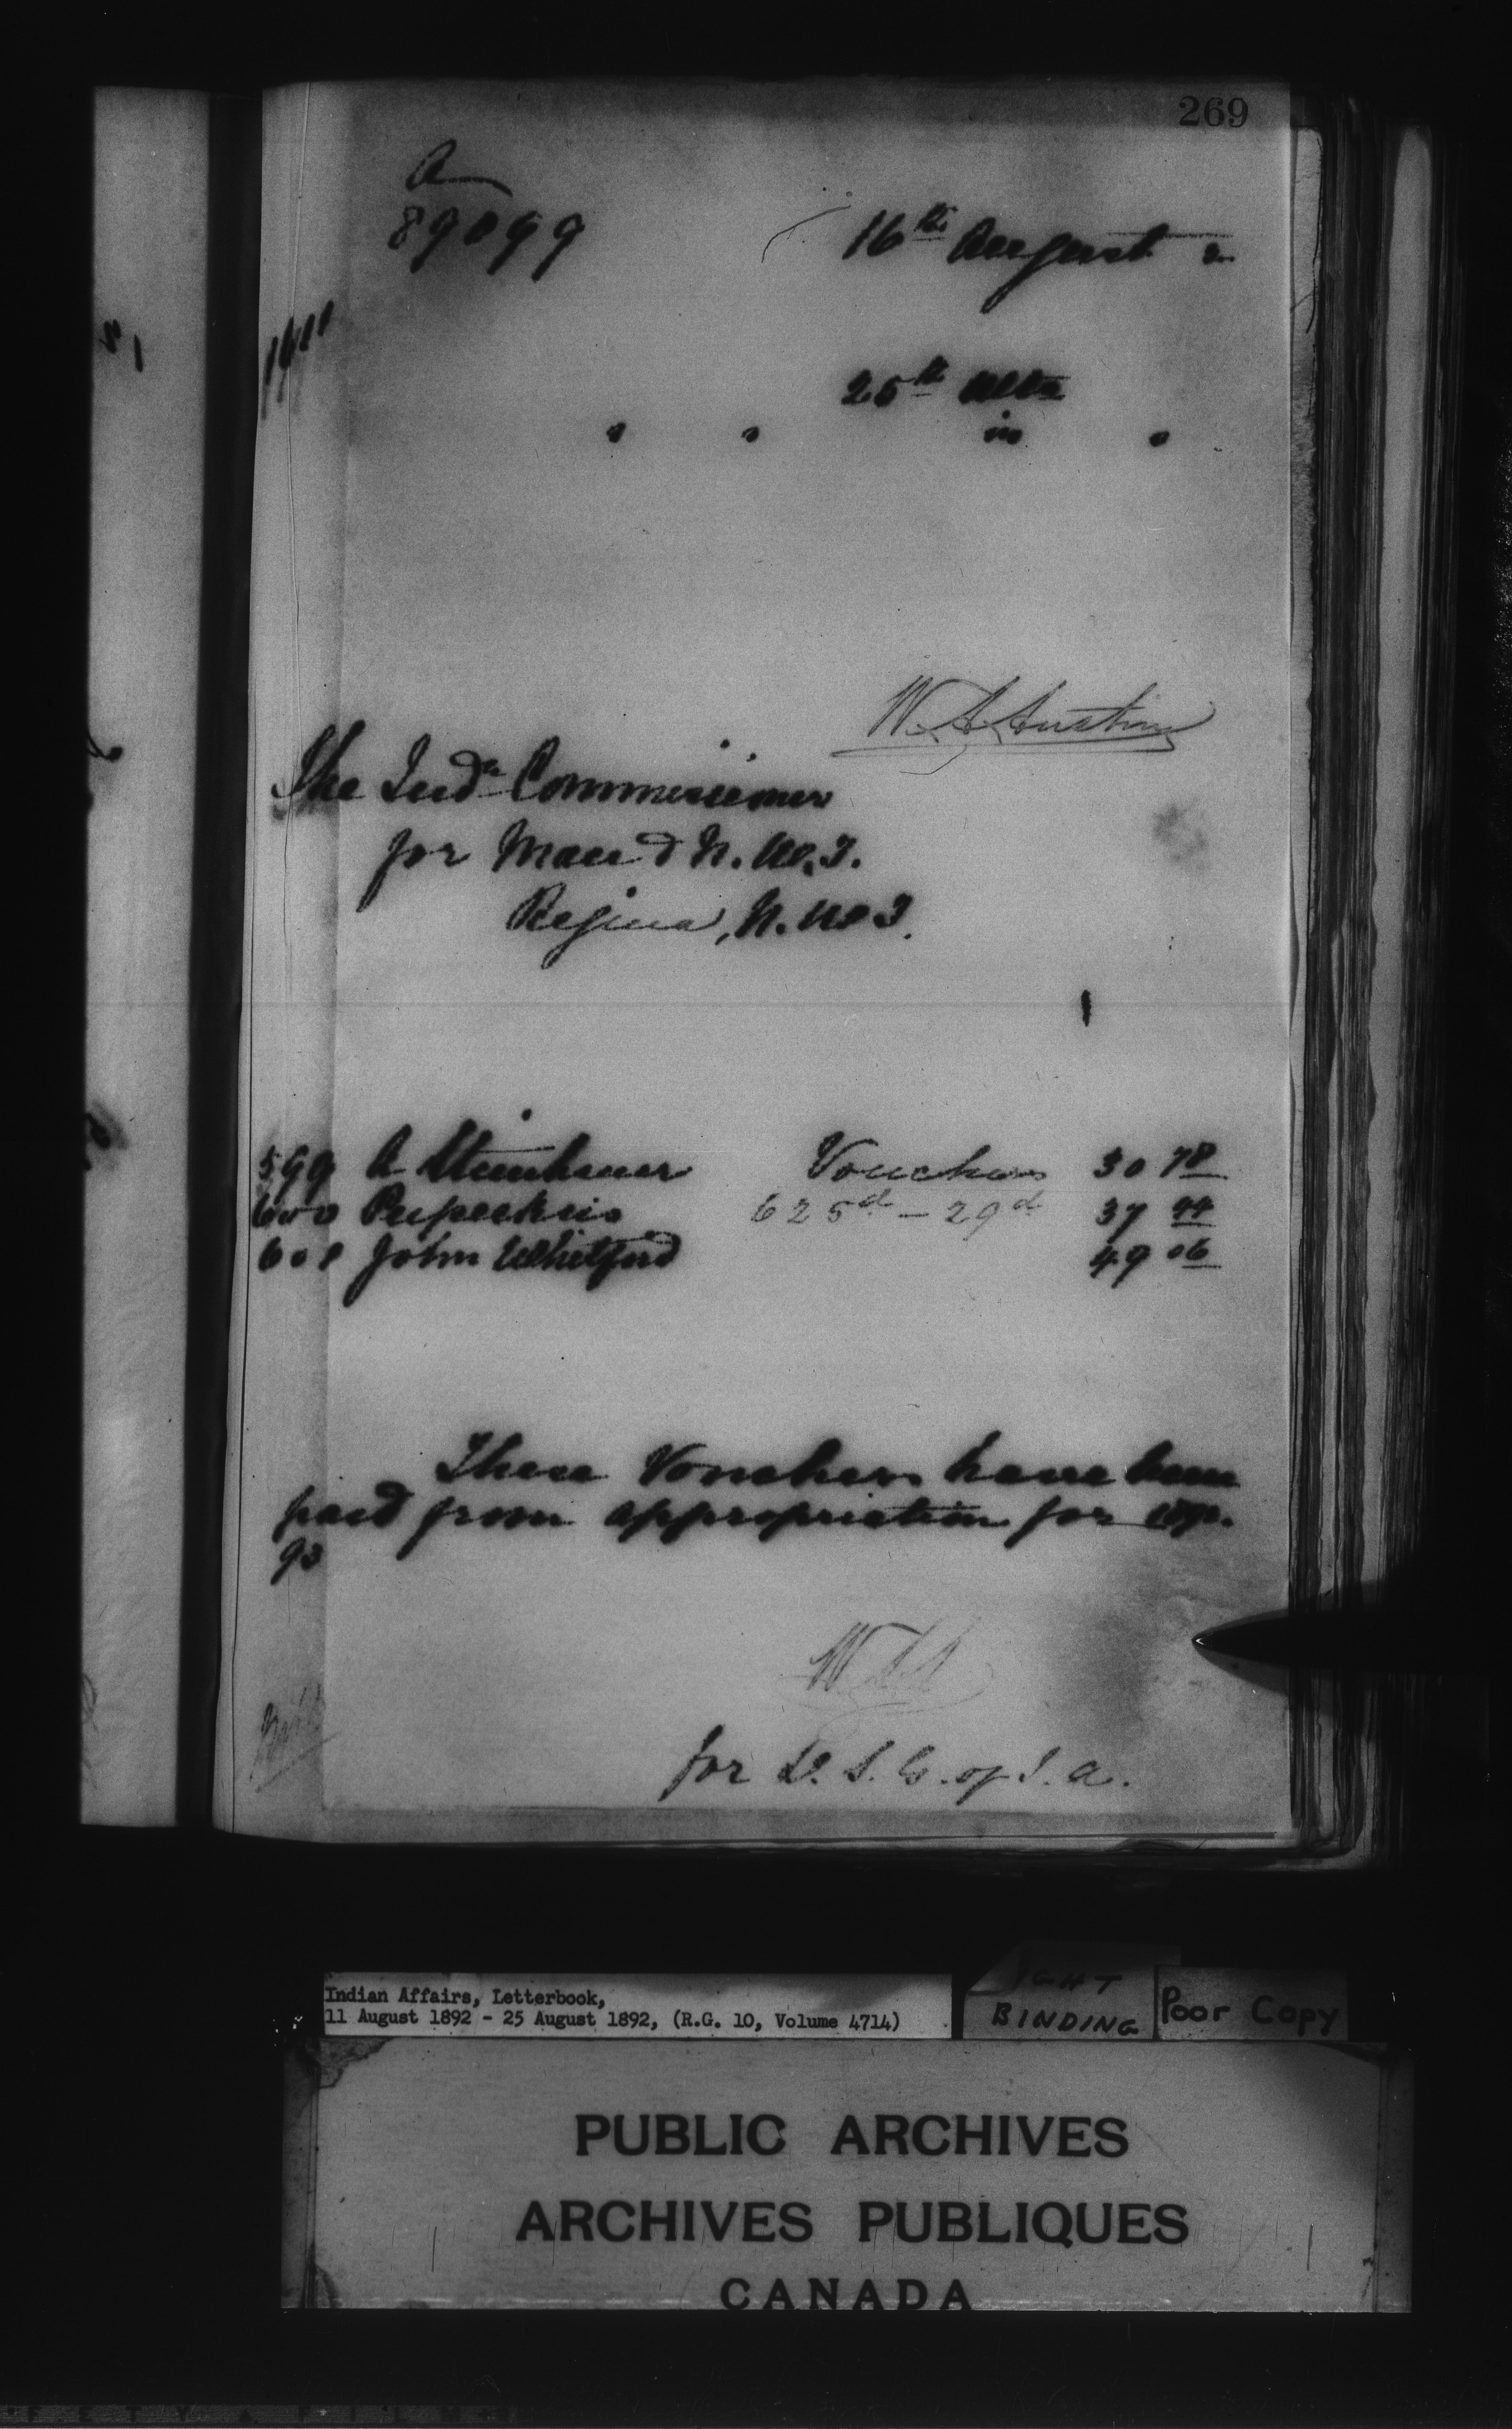 269
A
89099
16th August 2
25th ulto
in
W. A. Austin
The Indn Commissioner
for Man & N. W. T.
Regina, N. W. T.
599 A Steinhauer Vouchers 30 78
600 625d - 29d 37 44
601 John Whitford 49 06
These Vouchers have been
paid from appropriation for 1892.
93
W. A. A.
for D. S. G. of I. A.
Indian Affairs, Letterbook,
11 August 1892 - 25 August 1892, (R.G. 10, Volume 4714)
BINDING
Poor Copy
PUBLIC ARCHIVES
ARCHIVES PUBLIQUES
CANADA